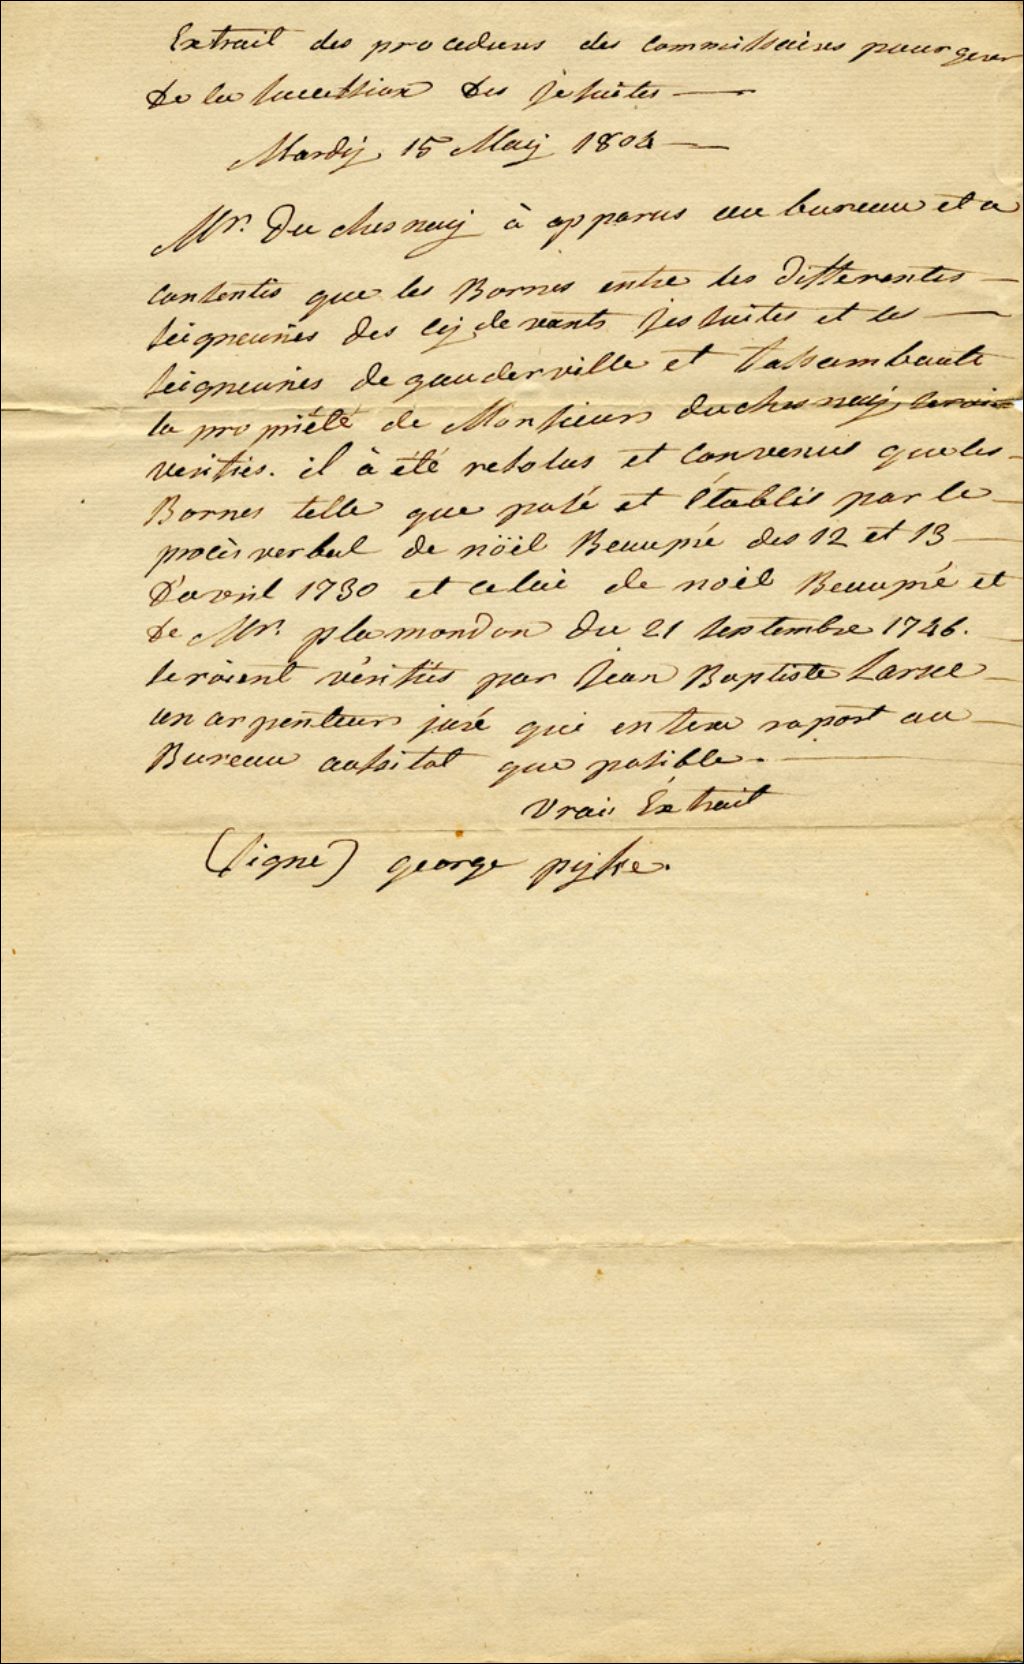 Extrait des procedures des commissaires pour gerer
De la succession Des jesuites —
Mardy 15 May 1804 —
Mr. Duchesnay à apparus au bureau et a
consentis que les Bornes entre les differentes —
seigneuries des cy devants jesuites et les —
seigneuries de gauderville et
la propriété de Monsieur duchesnay serois
verifiés. il à été resolus et convenus que les
Bornes telle que posé et établis par le
procès verbal de nöèl Beaupré des 12 et 13 —
D'avril 1730 et celui de noèl Beaupré et
De Mr. plamondon du 21 septembre 1746.
seroient vérifiés par jean Baptiste Larue
un arpenteur juré qui en fera raport au —
Bureau aussitot que possible. —
Vrai Extrait
(signé) george pyke.